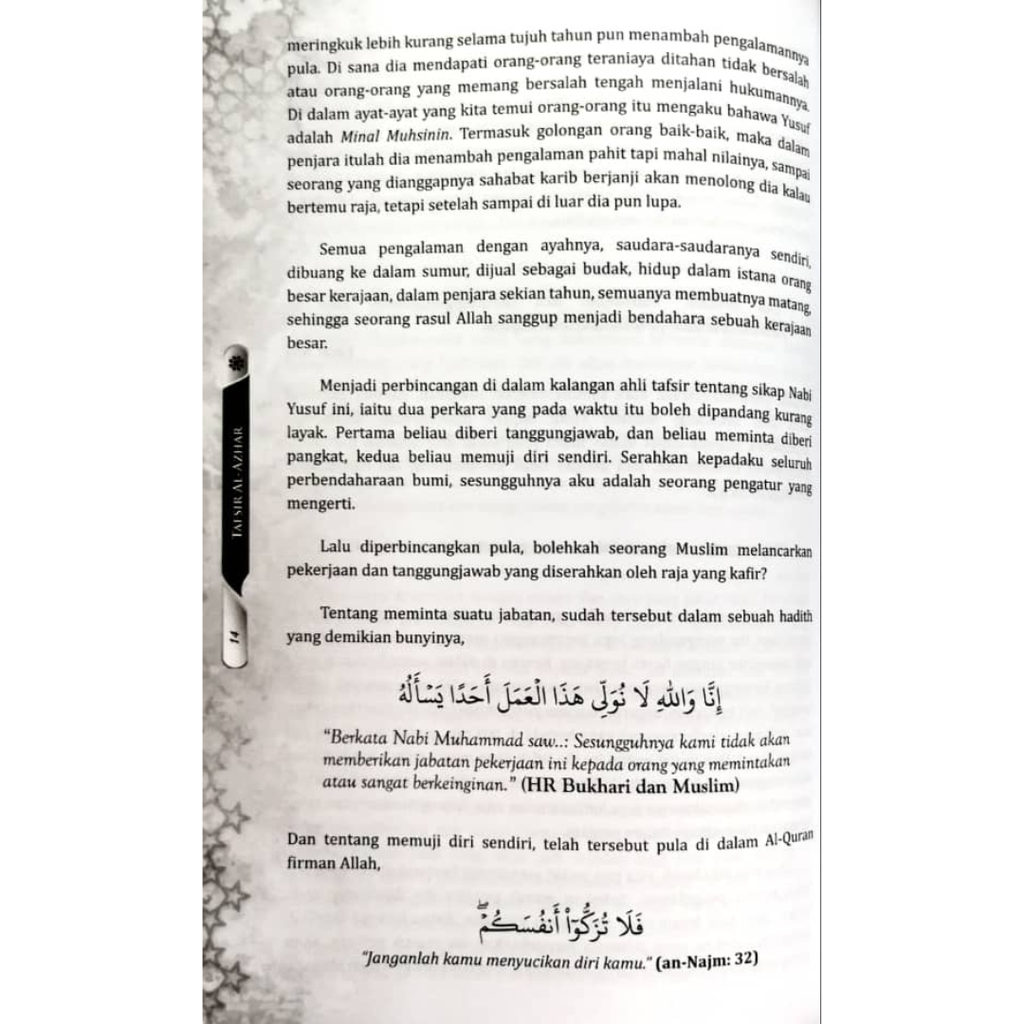 meringkuk lebih kurang selama tujuh tahun pun menambah pengalamannya
pula. Di sana dia mendapati orang-orang teraniaya ditahan tidak bersalah
atau orang-orang yang memang bersalah tengah menjalani hukumannya.
Di dalam ayat-ayat yang kita temui orang-orang itu mengaku bahawa Yusuf
adalah Minal Muhsinin. Termasuk golongan orang baik-baik, maka dalam
penjara itulah dia menambah pengalaman pahit tapi mahal nilainya, sampai
seorang yang dianggapnya sahabat karib berjanji akan menolong dia kalau
bertemu raja, tetapi setelah sampai di luar dia pun lupa.
Semua pengalaman dengan ayahnya, saudara-saudaranya sendiri,
dibuang ke dalam sumur, dijual sebagai budak, hidup dalam istana orang
besar kerajaan, dalam penjara sekian tahun, semuanya membuatnya matang,
sehingga seorang rasul Allah sanggup menjadi bendahara sebuah kerajaan
besar.
Menjadi perbincangan di dalam kalangan ahli tafsir tentang sikap Nabi
Yusuf ini, iaitu dua perkara yang pada waktu itu boleh dipandang kurang
layak. Pertama beliau diberi tanggungjawab, dan beliau meminta diberi
pangkat, kedua beliau memuji diri sendiri. Serahkan kepadaku seluruh
perbendaharaan bumi, sesungguhnya aku adalah seorang pengatur yang
mengerti.
Lalu diperbincangkan pula, bolehkah seorang Muslim melancarkan
pekerjaan dan tanggungjawab yang diserahkan oleh raja yang kafir?
Tentang meminta suatu jabatan, sudah tersebut dalam sebuah hadith
yang demikian bunyinya,
إِنَّا وَاللهِ لَا نُوَلِّى هَذَا الْعَمَلَ أَحَدًا يَسْأَلُهُ
“Berkata Nabi Muhammad saw..: Sesungguhnya kami tidak akan
memberikan jabatan pekerjaan ini kepada orang yang memintakan
atau sangat berkeinginan.” (HR Bukhari dan Muslim)
Dan tentang memuji diri sendiri, telah tersebut pula di dalam Al-Quran
firman Allah,
فَلَا تُزَكُّوٓا۟ أَنفُسَكُمْ ۖ
“Janganlah kamu menyucikan diri kamu.” (an-Najm: 32)
TAFSIR AL-AZHAR
14